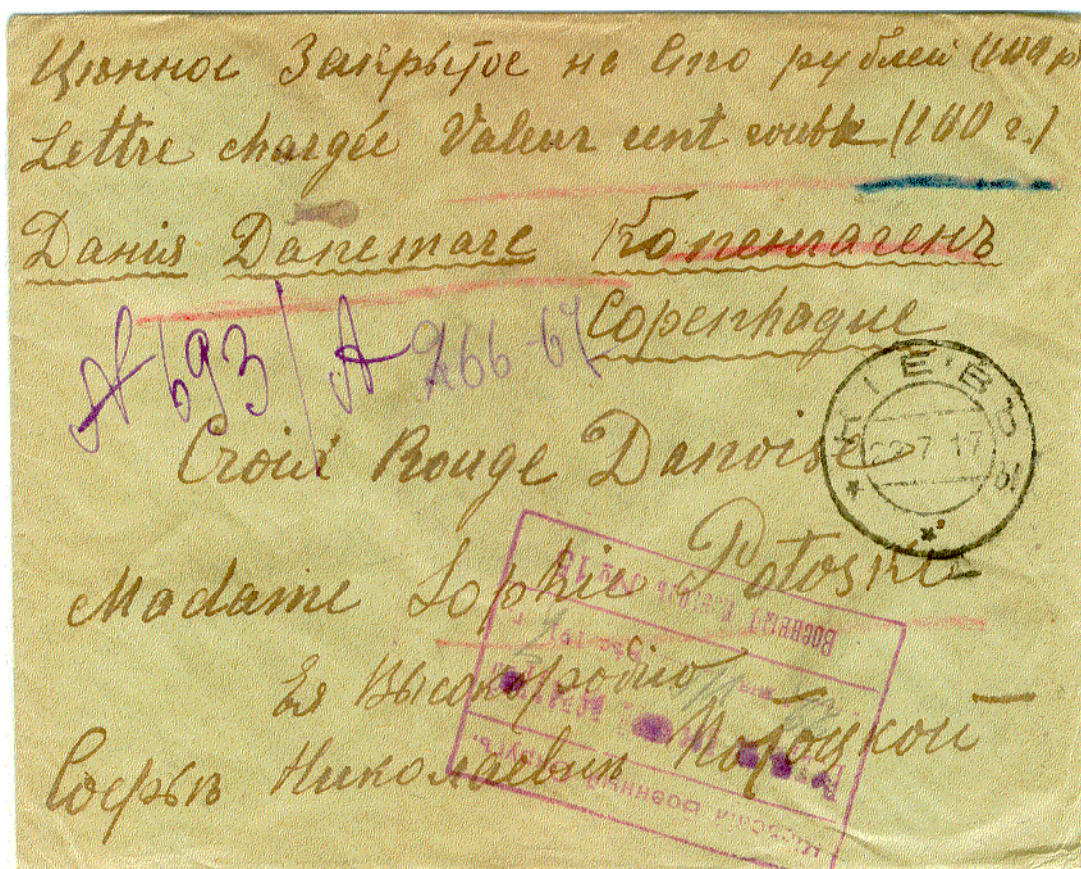 Цѣнное Закрытое на Сто рублей (100 р
Lettre chargée Valeur cent rouble (100 r.)
Данія Danemarc Копенгагенъ
Copenhague
№ 693 / A 266-67
КІЕВЪ
22 7 17
Croix Rouge Danoise
Madame Sophie Potoskii
Ея Высокородію
Софьѣ Николаевнѣ Потоцкой